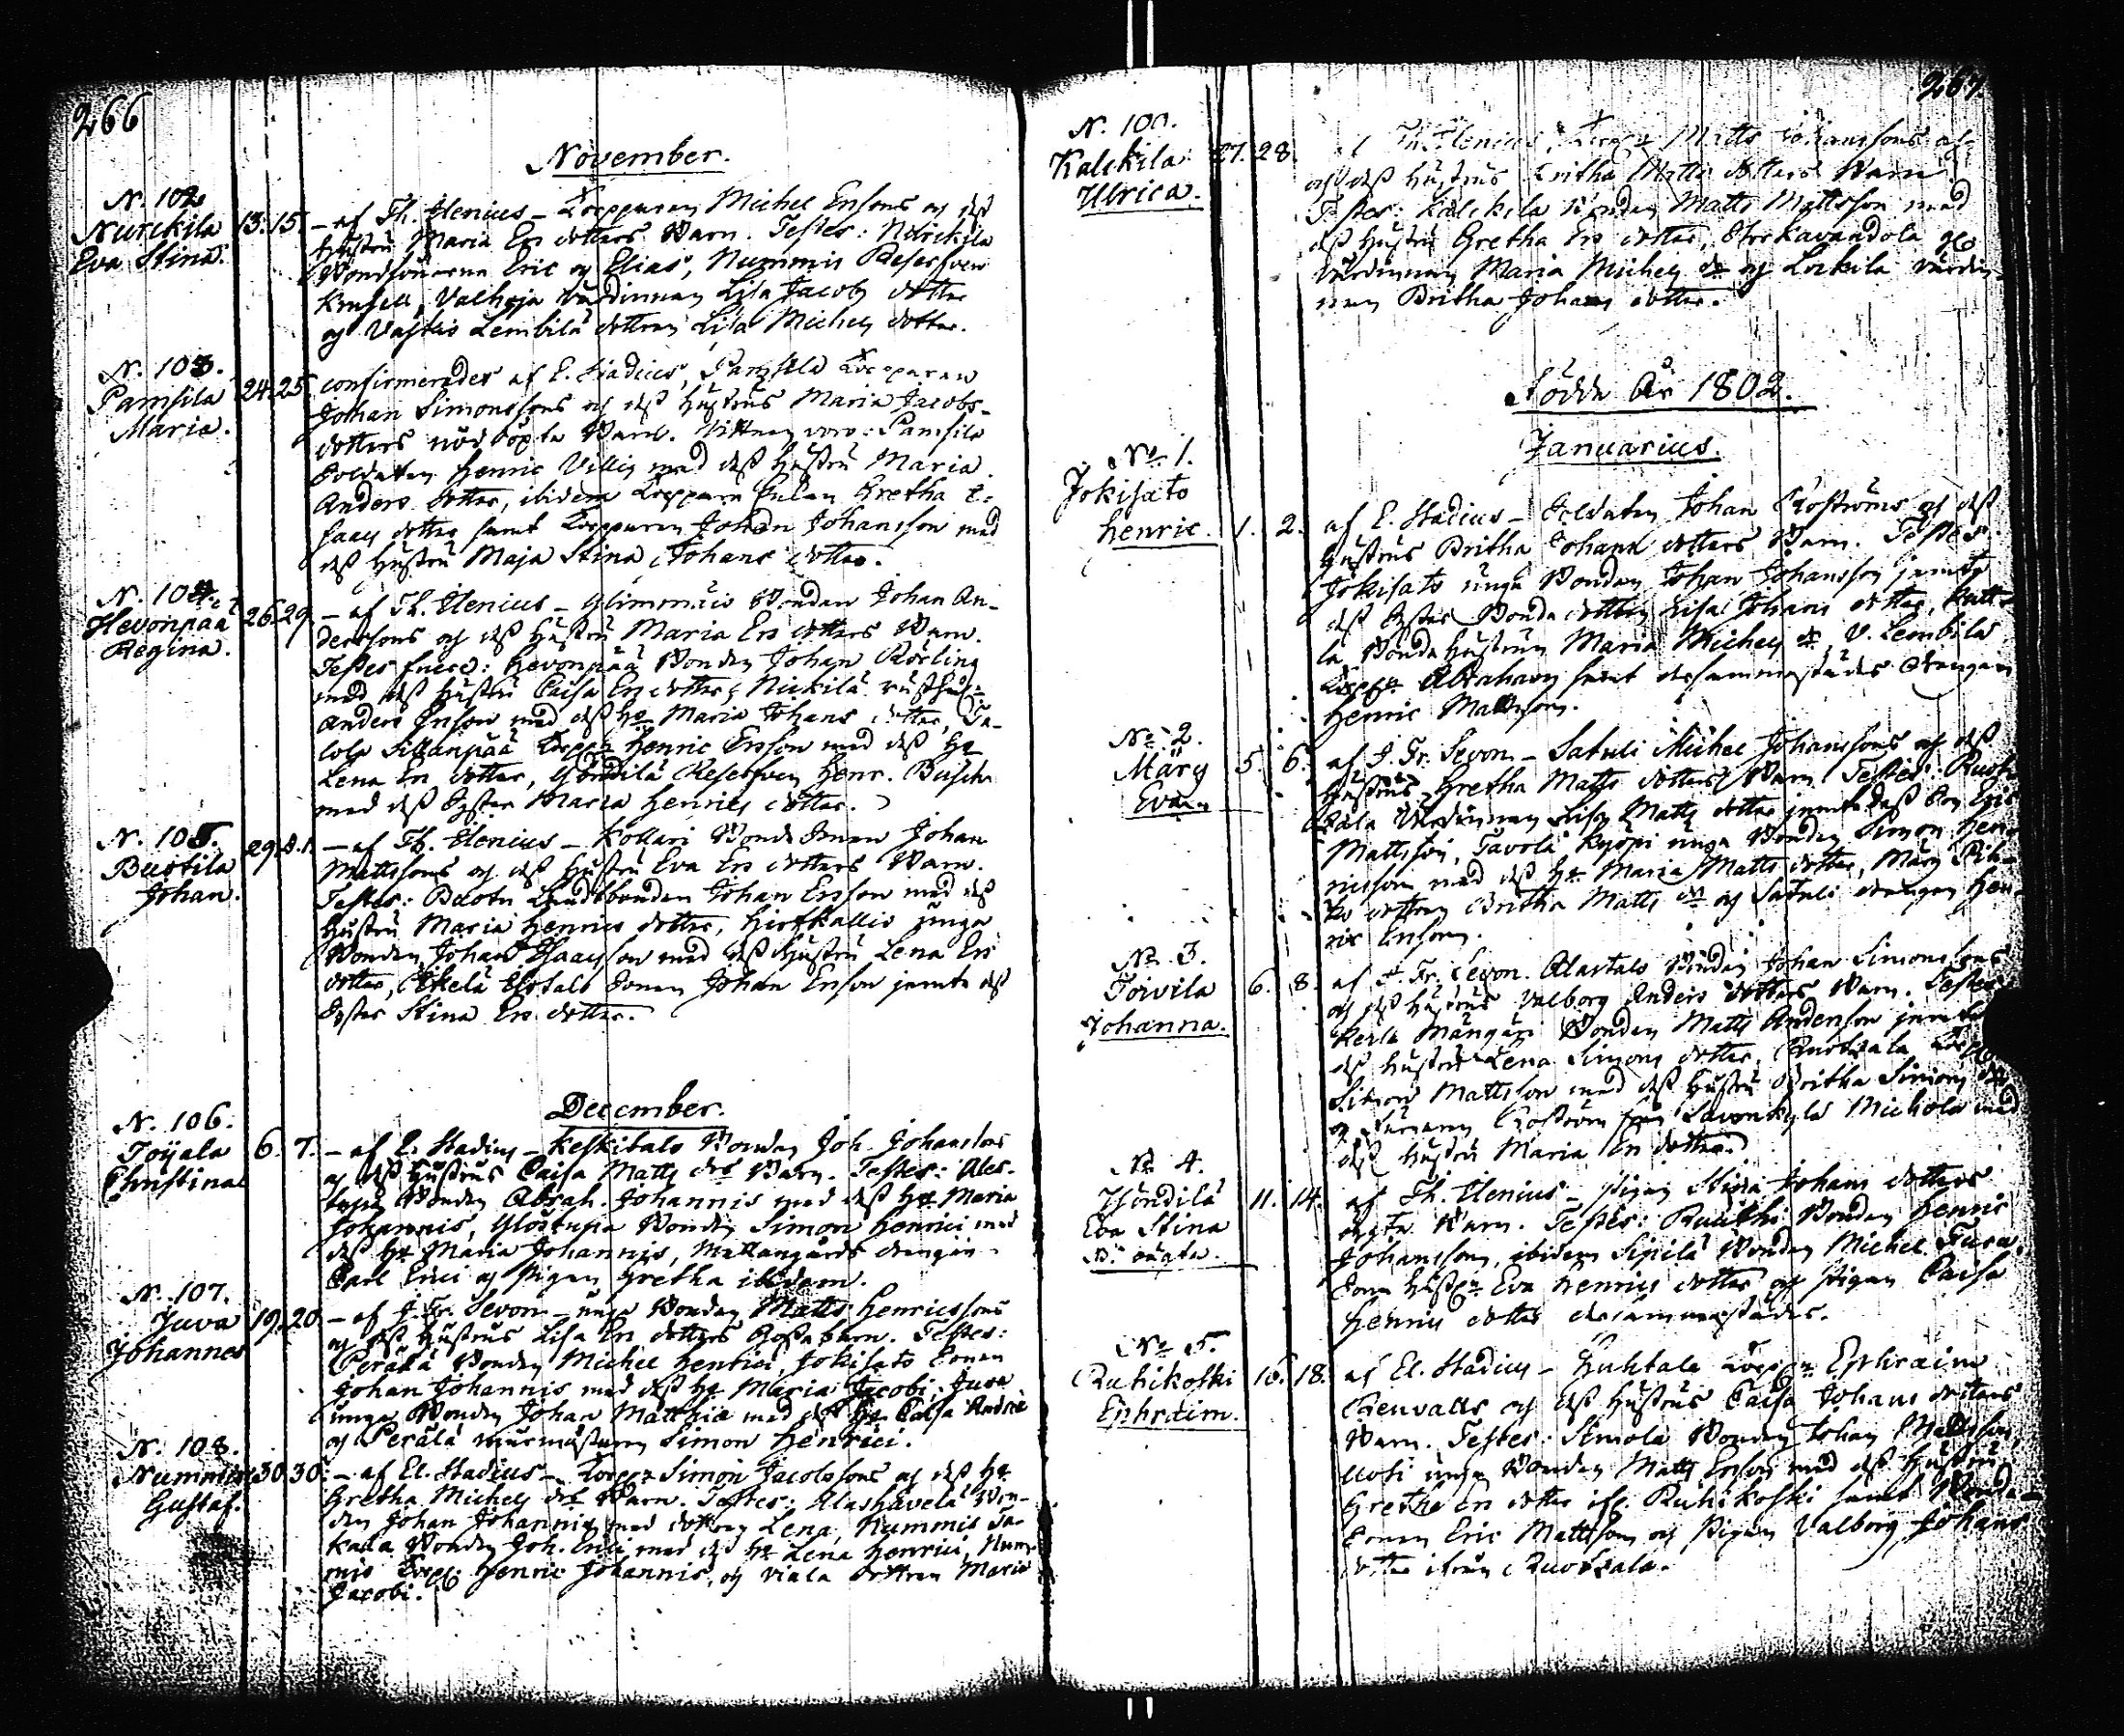 266
November.
N. 102
Nurckila 13. 15. - af Th. Elenius - Torpparen Michel Ersons og deß
Eva Stina. hustru Maria Ers dotters Barn. Testes: Nurckila
Bondsönerna Eric og Elias, Nummis Reserfven
, Valheja Värdinnan Lisa Jacobs dotter
og Vastus Lembilä dottren Lisa Michels dotter.
N. 103.
Pamsila 24. 25. confirmerades af E. Stadius, Pamsila Torpparen
Maria. Johan Simonssons og deß hustrus Maria Jacobs-
dotters nöddöpta Barn. Vittnen voro: Pamsila
Soldaten Henric Villig med deß hustru Maria
Anders dotter, ibidem Torppare Enkan Gretha I-
saacs dotter samt Torpparen Johan Johansson med
deß hustru Maja Stina Johans dotter.
N. 104.
Hevonpää 26. 29. - af Th. Elenius - Bonden Johan An-
Regina. derssons og deß hustru Maria Ers dotters Barn.
Testes fuere: Hevonpää Bonden Johan Rörling
med deß hustru Caisa Ers dotter, Nickilä
Anders Erson med deß hu Maria Johans dotter, Ta-
lola Sillanpää Torpp. Henric Ersson med deß hu
Lena Ers dotter, Göndilä Reserfven Henr. Busck
med deß Syster Maria Henrics dotter.
N. 105.
Bustila 29. D. 1. - af Th. Elenius - Kollari Bonde Sonen Johan
Johan. Mattssons og deß hustru Eva Ers dotters Barn.
Testes: Landtbonden Johan Ersson med deß
hustru Maria Henrics dotter, Hirfkallio unga
Bonden Johan Isaacsson med deß hustru Lena Ers
dotter, Sonen Johan Erson jemte deß
Syster Stina Ers dotter.
December.
N. 106.
Toijala 6. 7. - af E. Stadius - Keskitalo Bonden Joh. Johanssons
Christina og deß hustrus Caisa Matts dr Barn. Testes: Ales-
tupa Bonden Abrah. Johannis med deß hu Maria
Johannis, Ylöstupa Bonden Simon Henrici med
deß hu Maria Johannis, Mattangårds drengen
Carl Erici og Pigan Gretha ibidem.
N. 107.
Juva 19. 20. - af J. Fr. Sevon - unga Bonden Matts Henricssons
Johannes og deß hustrus Lisa Ers dotters Barn. Testes:
Perälä Bonden Michel Henrici, Jokisato Sonen
Johan Johannis med deß hu Maria Jacobi, Juva
unga Bonden Johan Matthiæ med deß hu Caisa Andreæ
og Perälä murmästaren Simon Henrici.
N. 108.
Nummis 30. 30. - af El. Stadius - Torpp. Simon Jacobssons og deß hu
Gustaf. Gretha Michels dr Barn. Testes: Alashavela Bon-
den Johan Johannis med dottren Lena, Nummis Ta-
kala Bonden Joh. Erici med deß hu Lena Henrici, Num-
mis Torpp. Henric Johannis, og Viala dottren Maria
Jacobi.
267.
N. 109.
Kalckila 27. 28. af Th. Elenius, Torpp. Matts Johanssons
Ulrica. og deß hustrus Britha Matts dotters Barn
Testes: Kalckila Bonden Matts Mattsson med
deß hustru Gretha Ers dotter,
Värdinnan Maria Michels dr og Lockila värdin-
nan Britha Johans dotter.
Födde År 1802.
Januarius.
No. 1.
Jokisato
Henric. 1. 2. af E. Stadius - Soldaten Johan Roströms og deß
hustrus Britha Johans dotters Barn. Testes:
Jokisato unga Bonden Johan Johansson jemte
deß Syster Bonde dottren Lisa Johans dotter, Katt-
la Bonda hustrun Maria Michels dr, V. Lembilä
Torpp. Abraham samt dersammastädes drengen
Henric Mattsson.
No. 2.
Märy 5. 6. af J. Fr. Sevon - Satuli Michel Johanssons og deß
Eva hustrus Gretha Matts dotters Barn Testes:
Värdinnan Lisa Matts dotter jemte deß Son Eric
Mattsson, Tavola Kyöpi unga Bonden Simon Hen-
ricsson med deß hu Maria Matts dotter, Märy
dottren Britha Matts dr og Satuli drengen Hen-
ric Ersson.
No. 3.
Toivila 6. 8. af J. Fr. Sevon. Alastalo Bonden Johan Simonssons
Johanna. og deß hustrus Valborg Anders dotters Barn. Testes:
Kerla Mängäri Bonden Matts Andersson jemte
deß hustru Lena Simons dotter, Ruotsala
Simon Mattsson med deß hustru Britha Simons dr
og Roström från Savonkylä Michola med
deß hustru Maria Ers dotter.
No. 4.
Yföndilä 11. 14. af Th. Elenius - Pigan Stina Johans dotters
Eva Stina oägta Barn. Testes: Bonden Henric
B. oägta. Johansson, ibidem Sipilä Bonden Michel
Eva Henrics dotter og Pigan Caisa
Henrics dotter dersammastädes.
No. 5.
Ruhikoski 16. 18. af El. Stadius - Huhtala Torpp. Ephraim
Ephraim. og deß hustrus Caisa Johans dotters
Barn. Testes: Simola Bonden Johan Mattsson,
unga Bonden Matts Erson med deß hustru
Gretha Ers dotter ifr. Ruhikoski samt Bonde-
Sonen Eric Mattsson og Pigan Valborg Johans
dotter ifrån Ruotsala.